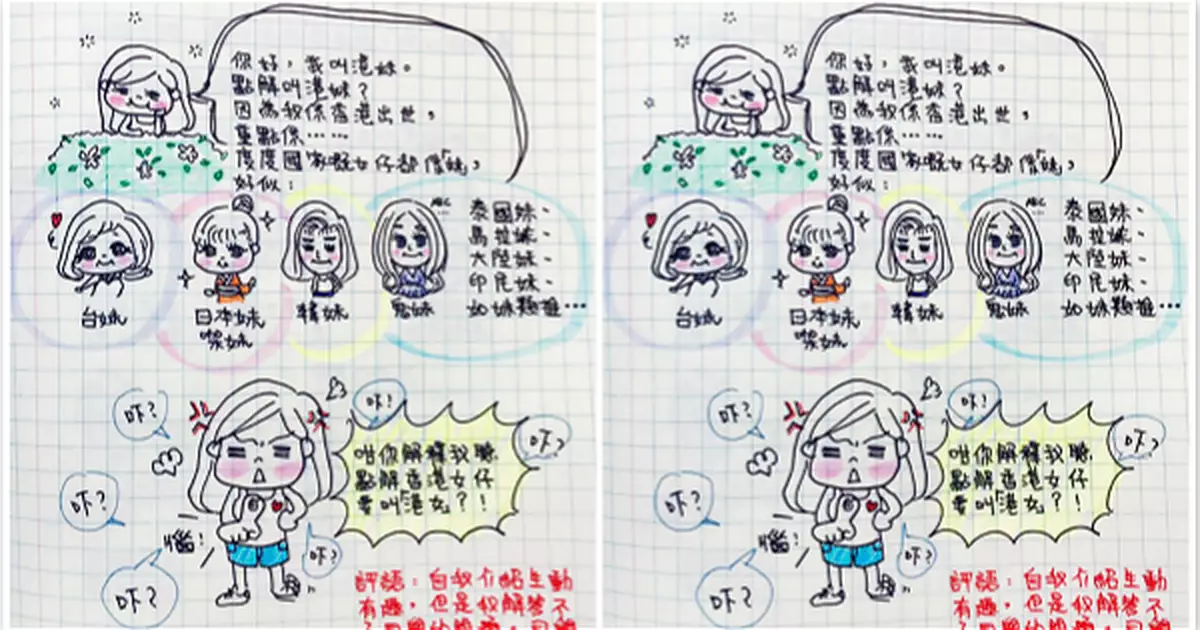 你好，我叫港妹。
點解叫港妹？
因為我係香港出世，
重點係……
度度國家嘅女仔都係「妹」，
好似：
ABC
台妹
日本妹
喫妹
韓妹
鬼妹
泰國妹、
馬拉妹、
大陸妹、
印尼妹、
如妹類推…
吓？
吓？
吓？
吓？
吓？
吓？
惱！
咁你解釋我聽
點解香港女仔
要叫「港女」？！
評語：自我介紹生動
有趣，但是我解答不
你好，我叫港妹。
點解叫港妹？
因為我係香港出世，
重點係……
度度國家嘅女仔都係「妹」，
好似：
ABC
台妹
日本妹
喫妹
韓妹
鬼妹
泰國妹、
馬拉妹、
大陸妹、
印尼妹、
如妹類推…
吓？
吓？
吓？
吓？
吓？
吓？
惱！
咁你解釋我聽
點解香港女仔
要叫「港女」？！
評語：自我介紹生動
有趣，但是我解答不